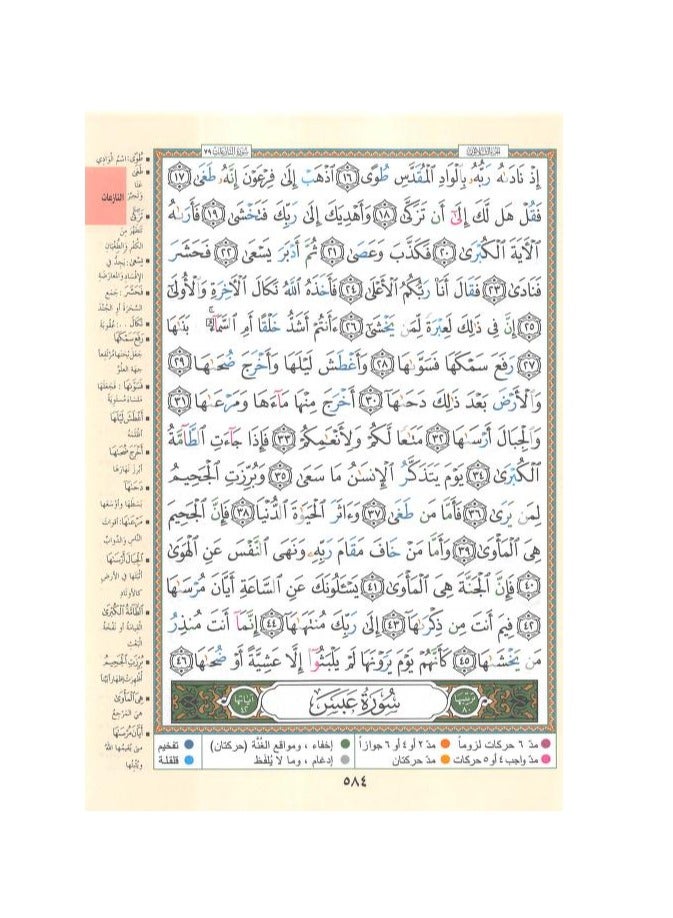 الجزء الثلاثون
سورة النازعات ٧٩
إِذْ نَادَىٰهُ رَبُّهُۥ بِٱلْوَادِ ٱلْمُقَدَّسِ طُوًى ١٦ ٱذْهَبْ إِلَىٰ فِرْعَوْنَ إِنَّهُۥ طَغَىٰ ١٧
فَقُلْ هَل لَّكَ إِلَىٰٓ أَن تَزَكَّىٰ ١٨ وَأَهْدِيَكَ إِلَىٰ رَبِّكَ فَتَخْشَىٰ ١٩ فَأَرَىٰهُ
ٱلْءَايَةَ ٱلْكُبْرَىٰ ٢٠ فَكَذَّبَ وَعَصَىٰ ٢١ ثُمَّ أَدْبَرَ يَسْعَىٰ ٢٢ فَحَشَرَ
فَنَادَىٰ ٢٣ فَقَالَ أَنَا۠ رَبُّكُمُ ٱلْأَعْلَىٰ ٢٤ فَأَخَذَهُ ٱللَّهُ نَكَالَ ٱلْءَاخِرَةِ وَٱلْأُولَىٰٓ
٢٥ إِنَّ فِى ذَٰلِكَ لَعِبْرَةً لِّمَن يَخْشَىٰٓ ٢٦ ءَأَنتُمْ أَشَدُّ خَلْقًا أَمِ ٱلسَّمَآءُ ۚ بَنَىٰهَا
٢٧ رَفَعَ سَمْكَهَا فَسَوَّىٰهَا ٢٨ وَأَغْطَشَ لَيْلَهَا وَأَخْرَجَ ضُحَىٰهَا ٢٩
وَٱلْأَرْضَ بَعْدَ ذَٰلِكَ دَحَىٰهَآ ٣٠ أَخْرَجَ مِنْهَا مَآءَهَا وَمَرْعَىٰهَا ٣١
وَٱلْجِبَالَ أَرْسَىٰهَا ٣٢ مَتَٰعًا لَّكُمْ وَلِأَنْعَٰمِكُمْ ٣٣ فَإِذَا جَآءَتِ ٱلطَّآمَّةُ
ٱلْكُبْرَىٰ ٣٤ يَوْمَ يَتَذَكَّرُ ٱلْإِنسَٰنُ مَا سَعَىٰ ٣٥ وَبُرِّزَتِ ٱلْجَحِيمُ
لِمَن يَرَىٰ ٣٦ فَأَمَّا مَن طَغَىٰ ٣٧ وَءَاثَرَ ٱلْحَيَوٰةَ ٱلدُّنْيَا ٣٨ فَإِنَّ ٱلْجَحِيمَ
هِىَ ٱلْمَأْوَىٰ ٣٩ وَأَمَّا مَنْ خَافَ مَقَامَ رَبِّهِۦ وَنَهَى ٱلنَّفْسَ عَنِ ٱلْهَوَىٰ
٤٠ فَإِنَّ ٱلْجَنَّةَ هِىَ ٱلْمَأْوَىٰ ٤١ يَسْـَٔلُونَكَ عَنِ ٱلسَّاعَةِ أَيَّانَ مُرْسَىٰهَا
٤٢ فِيمَ أَنتَ مِن ذِكْرَىٰهَآ ٤٣ إِلَىٰ رَبِّكَ مُنتَهَىٰهَآ ٤٤ إِنَّمَآ أَنتَ مُنذِرُ
مَن يَخْشَىٰهَا ٤٥ كَأَنَّهُمْ يَوْمَ يَرَوْنَهَا لَمْ يَلْبَثُوٓا۟ إِلَّا عَشِيَّةً أَوْ ضُحَىٰهَا ٤٦
ترتيبها ٨٠
سُورَةُ عَبَسَ
آياتها ٤٢
طُوًى: اسْمُ الْوَادِي
طَغَىٰ
عَتَا
وَتَجَبَّرَ
تَزَكَّىٰ
تَتَطَهَّرَ مِنَ
الكُفْرِ وَالطُّغْيَانِ
يَسْعَىٰ: يَجِدُّ فِي
الإِفْسَادِ وَالمُعَارَضَةِ
فَحَشَرَ: جَمَعَ
السَّحَرَةَ أَوِ الجُنْدَ
نَكَالَ ..: عُقُوبَةَ
رَفَعَ سَمْكَهَا
جَعَلَ ثِخَنَهَا مُرْتَفِعاً
جِهَةَ العُلُوِّ
فَسَوَّاهَا: فَجَعَلَهَا
مَلْسَاءَ مُسْتَوِيَةً
أَغْطَشَ لَيْلَهَا
أَظْلَمَهُ
أَخْرَجَ ضُحَاهَا
أَبْرَزَ نَهَارَهَا
دَحَاهَا
بَسَطَهَا وَأَوْسَعَهَا
مَرْعَاهَا: أَقْوَاتَ
النَّاسِ وَالدَّوَابِّ
الْجِبَالَ أَرْسَاهَا
أَثْبَتَهَا فِي الأَرْضِ
كَالأَوْتَادِ
الطَّامَّةُ الْكُبْرَىٰ
القِيَامَةُ أَوْ نَفْخَةُ
البَعْثِ
بُرِّزَتِ الْجَحِيمُ
أُظْهِرَتْ إِظْهَاراً بَيِّناً
هِيَ الْمَأْوَىٰ
هِيَ المَرْجِعُ
أَيَّانَ مُرْسَاهَا
مَتَى يُقِيمُهَا اللهُ
وَيُثْبِتُهَا
النازعات
مدّ ٦ حركات لزوماً
مدّ ٢ أو ٤ أو ٦ جوازاً
إخفاء ، ومواقع الغُنَّة (حركتان)
تفخيم
مدّ واجب ٤ أو ٥ حركات
مدّ حركتان
إدغام ، وما لا يُلفَظ
قلقلة
٥٨٤